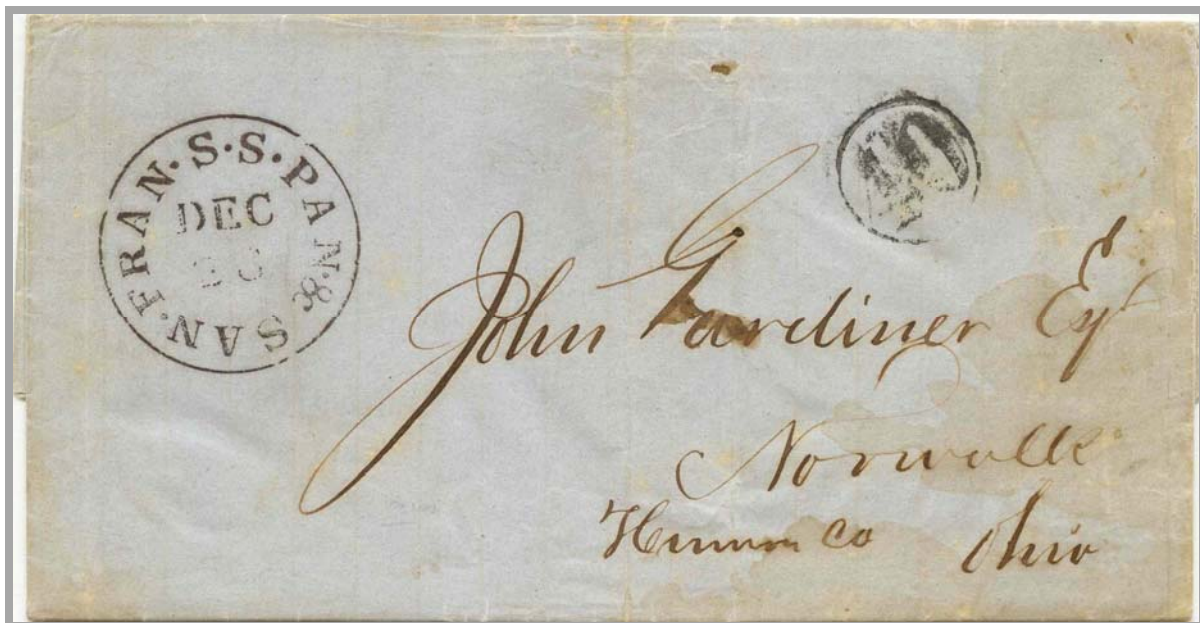 PAN. & SAN. FRAN. S. S.
DEC
40
John Gardiner Esq
Norwalk
Huron Co Ohio